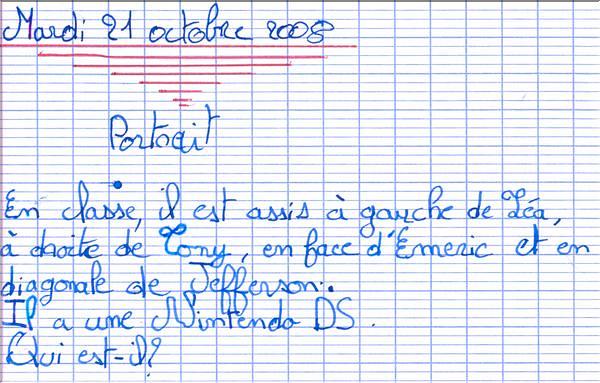 Mardi 21 octobre 2008
Portrait
En classe, il est assis à gauche de Léa,
à droite de Tony, en face d'Emeric et en
diagonale de Jefferson.
Il a une Nintendo DS.
Qui est-il?